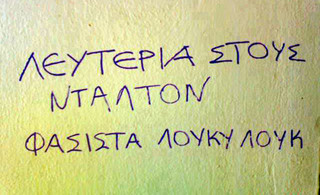 ΛΕΥΤΕΡΙΑ ΣΤΟΥΣ
ΝΤΑΛΤΟΝ
ΦΑΣΙΣΤΑ ΛΟΥΚΥ ΛΟΥΚ